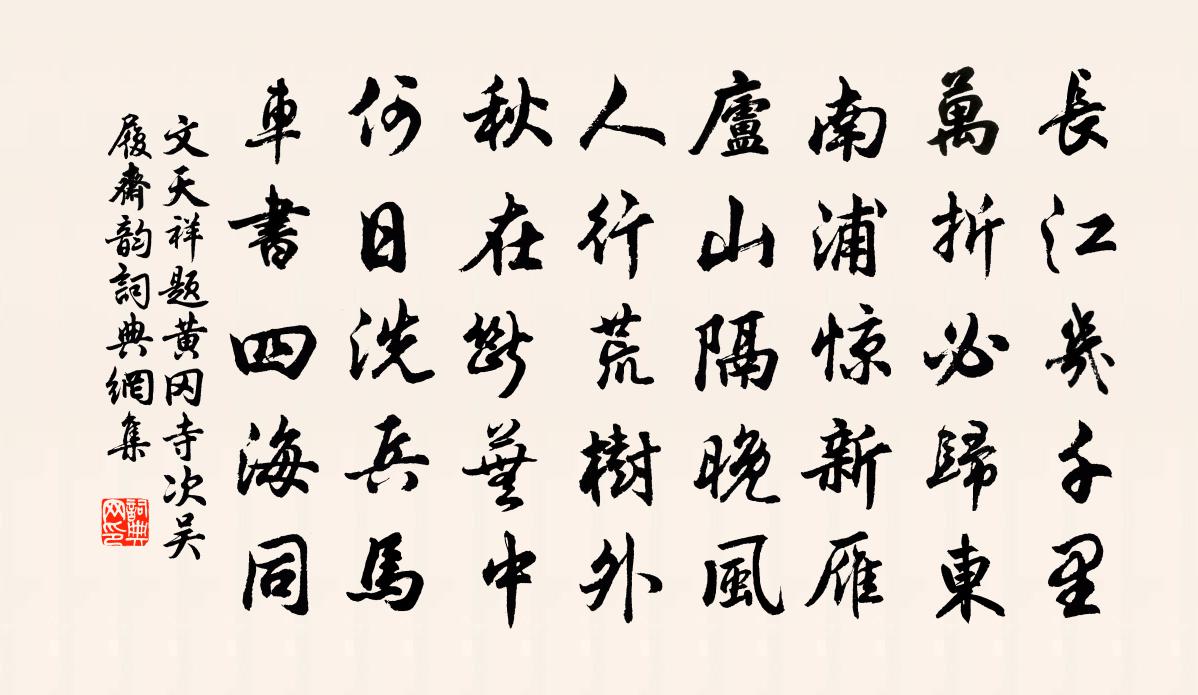 長江幾千里
萬折必歸東
南浦惊新雁
廬山隔晚風
人行荒樹外
秋在斷蕪中
何日洗兵馬
車書四海同
文天祥題黄冈寺次吴
履齋韵詞典網集
詞典网印